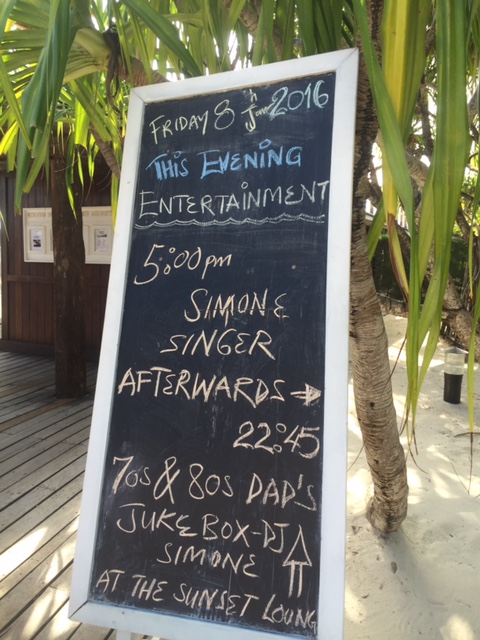 FRIDAY 8th Jan 2016
THIS EVENING
ENTERTAINMENT
5:00pm
SIMONE
SINGER
AFTERWARDS ⇒
22:45
70s & 80s DAD'S
JUKE BOX-DJ
SIMONE
AT THE SUNSET LOUNG